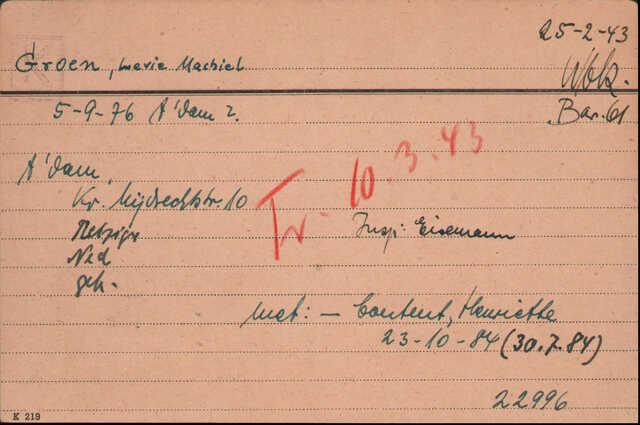 25-2-43
Groen, Levie Machiel
Wbk.
5-9-76 A'dam Z.
Bar. 61
A'dam,
Kr. Mijdrechtstr. 10
Tr. 10.3.43
Metzger
Insp: Eisemann
Ned
geh.
met: — Content, Henriette
23-10-84 (30.7.84)
22996
K 219